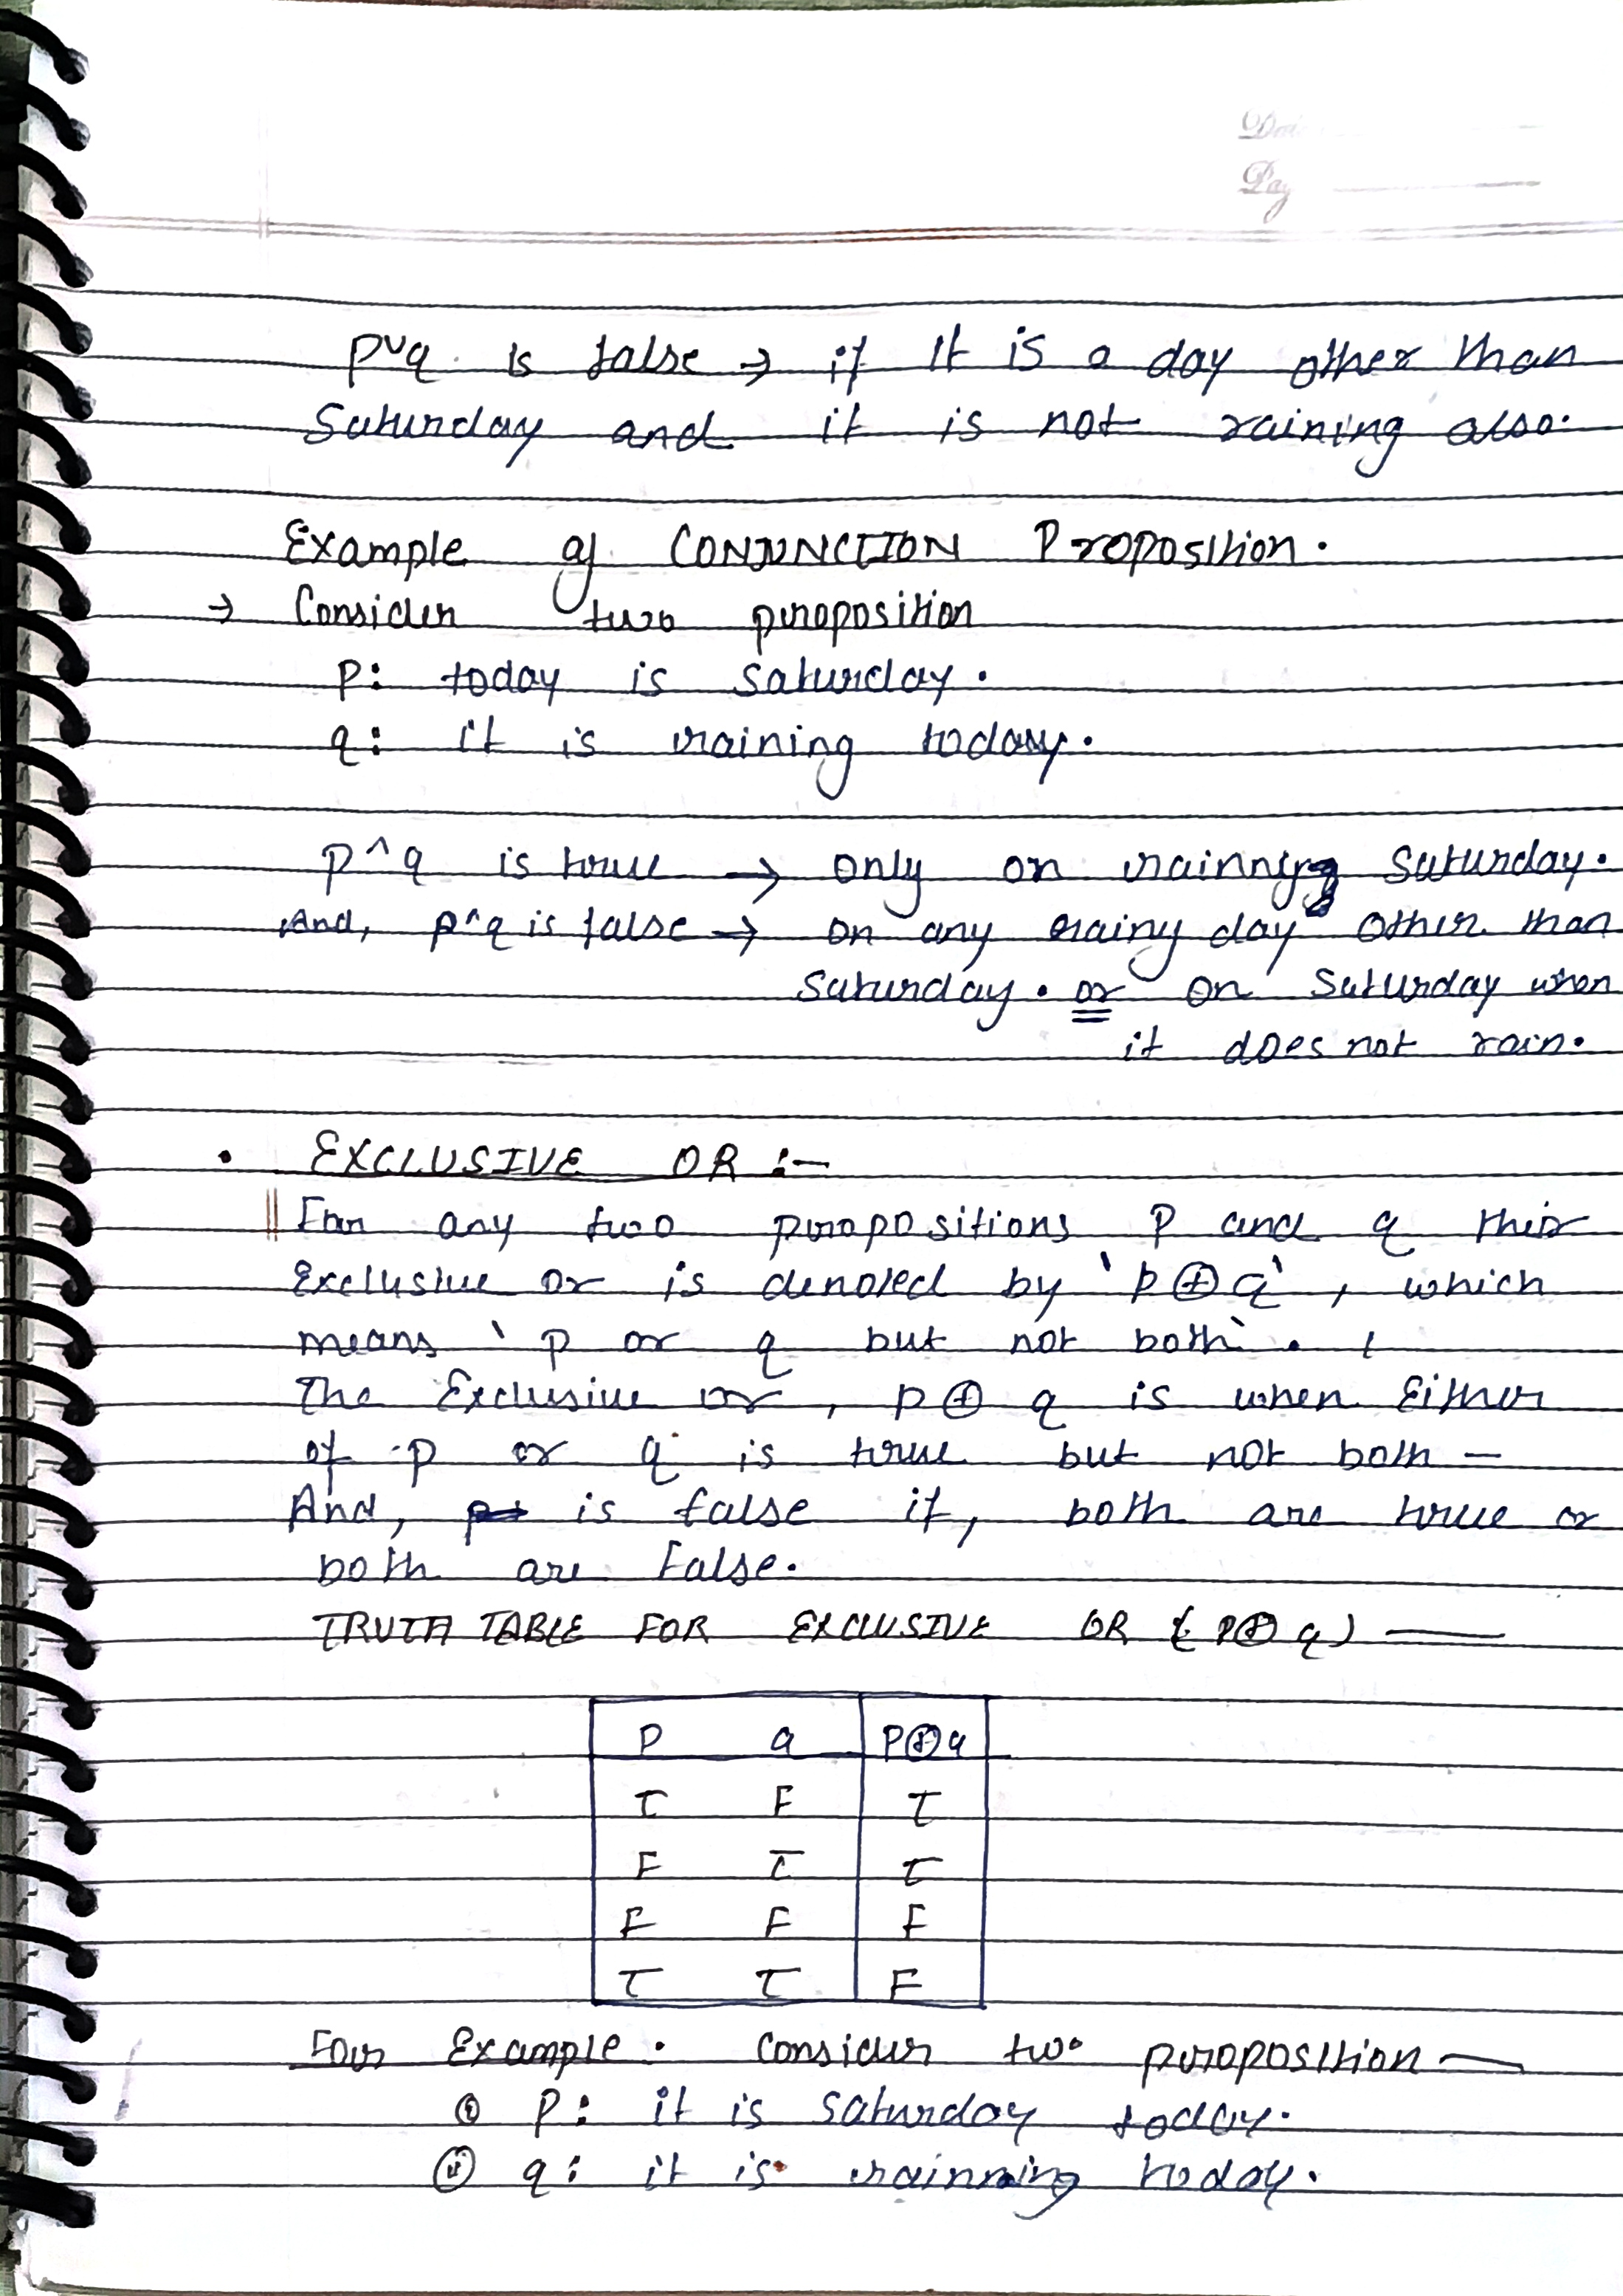 Date
Pag
p∨q is false → if it is a day other than
Saturday and it is not raining also.
Example of CONJUNCTION Proposition.
→ Consider two proposition
p: today is saturday.
q: it is raining today.
p^q is true → only on rainning Saturday.
And, p^q is false → on any rainy day other than
Saturday. or on Saturday when
it does not rain.
• EXCLUSIVE OR :-
For any two propositions p and q their
Exclusive or is denoted by 'p⊕q', which
means 'p or q but not both'.
The Exclusive or, p⊕q is when Either
of p or q is true but not both –
And, is false if, both are true or
both are False.
TRUTH TABLE FOR EXCLUSIVE OR {p⊕q) —
p q p⊕q
T F T
F T T
F F F
T T F
For Example. Consider two proposition —
(i) p: it is saturday today.
(ii) q: it is rainning today.